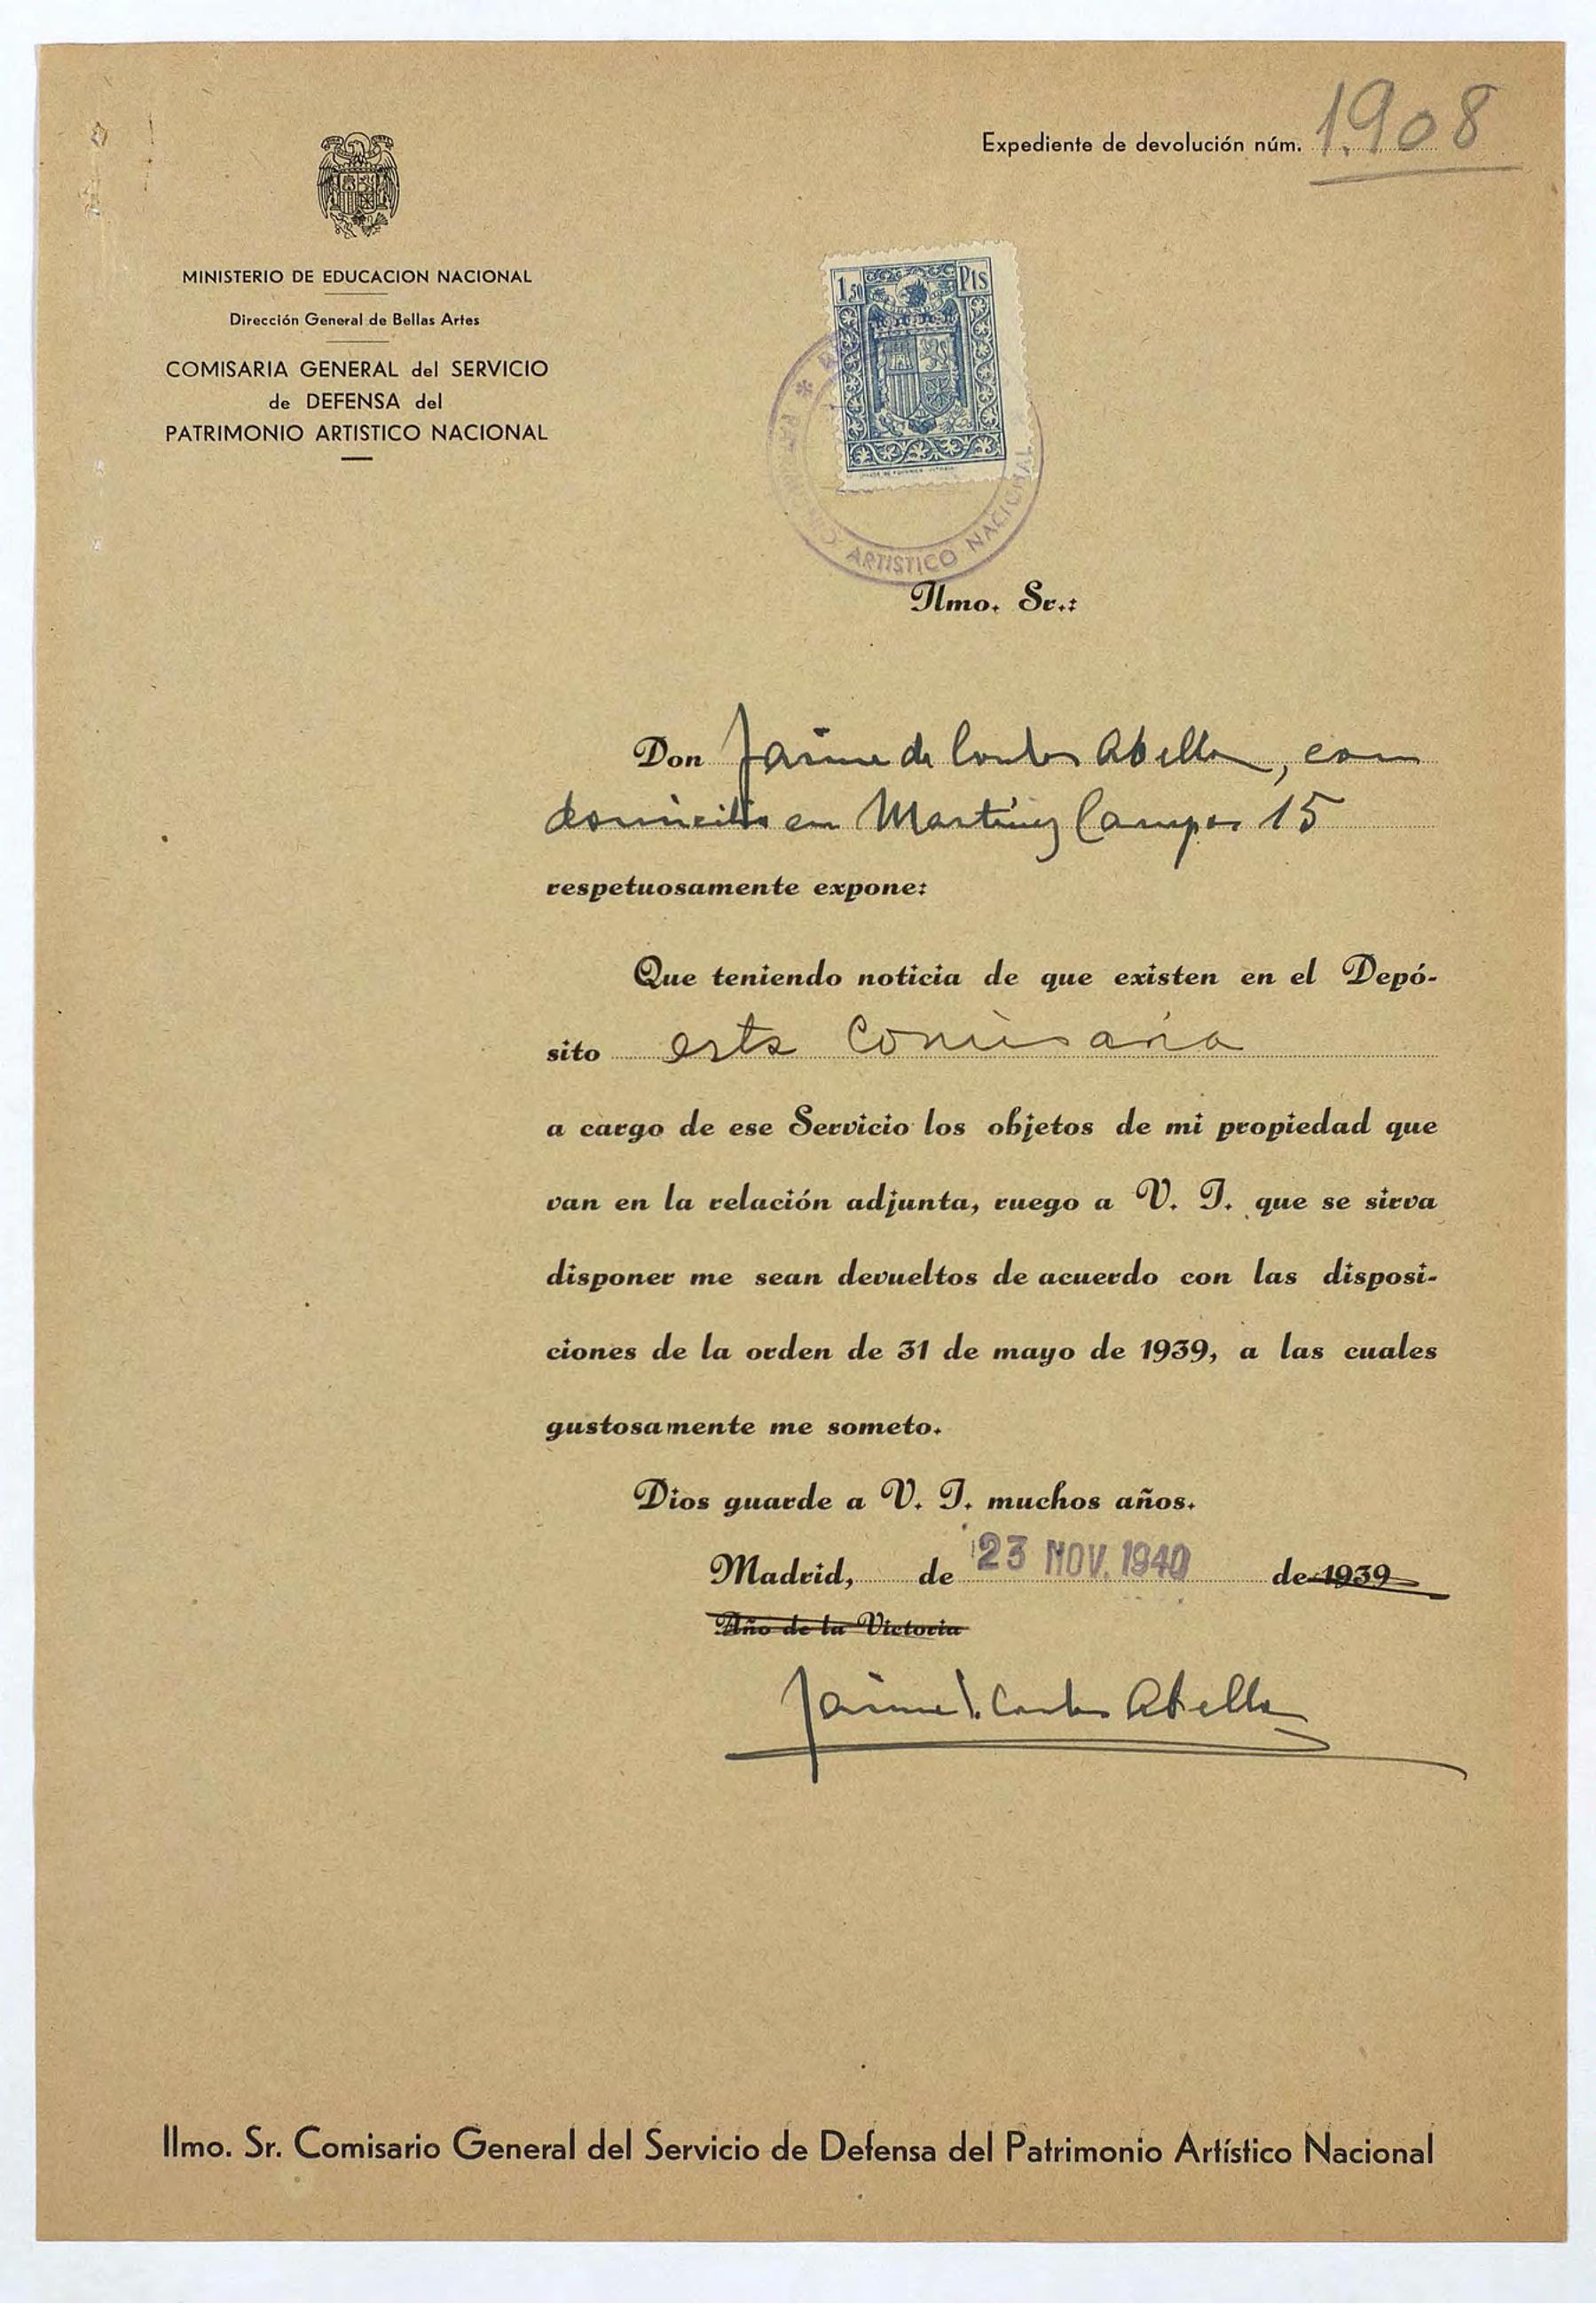 Expediente de devolución núm. 1.908
MINISTERIO DE EDUCACION NACIONAL
Dirección General de Bellas Artes
COMISARIA GENERAL del SERVICIO
de DEFENSA del
PATRIMONIO ARTISTICO NACIONAL
1,50 Pts
ARTISTICO NACIONAL
Ilmo. Sr.:
Don Jaime de Abella, con
domicilio en Martinez Campos 15
respetuosamente expone:
Que teniendo noticia de que existen en el Depó-
sito esta Comisaria
a cargo de ese Servicio los objetos de mi propiedad que
van en la relación adjunta, ruego a V. I. que se sirva
disponer me sean devueltos de acuerdo con las disposi-
ciones de la orden de 31 de mayo de 1939, a las cuales
gustosamente me someto.
Dios guarde a V. I. muchos años.
Madrid, de 23 NOV. 1940 de 1939
Año de la Victoria
Jaime Abella
Ilmo. Sr. Comisario General del Servicio de Defensa del Patrimonio Artístico Nacional